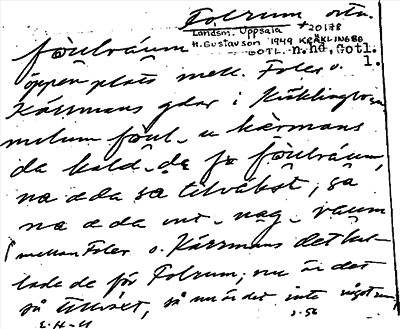 Folrum, ortn.
Landsm. Uppsala # 20178
H. Gustavson 1949 KRÄKLINGBO
GOTL. n.hd, Gotl.
fòulràum 1.
öppen plats mell. Foler o.
Kärrmans gdar i Kräklingbo sn
melum foul- u kärmans
da kald- de fo fòulràum,
næ æ da sa tilvabst, sa
næ æ da int- nag- raum
mellan Foler o. Kärrmans det kal-
lade de för Folrum; nu är det
så tillväxt, så nu är det inte något rum
E. H-u s. 56